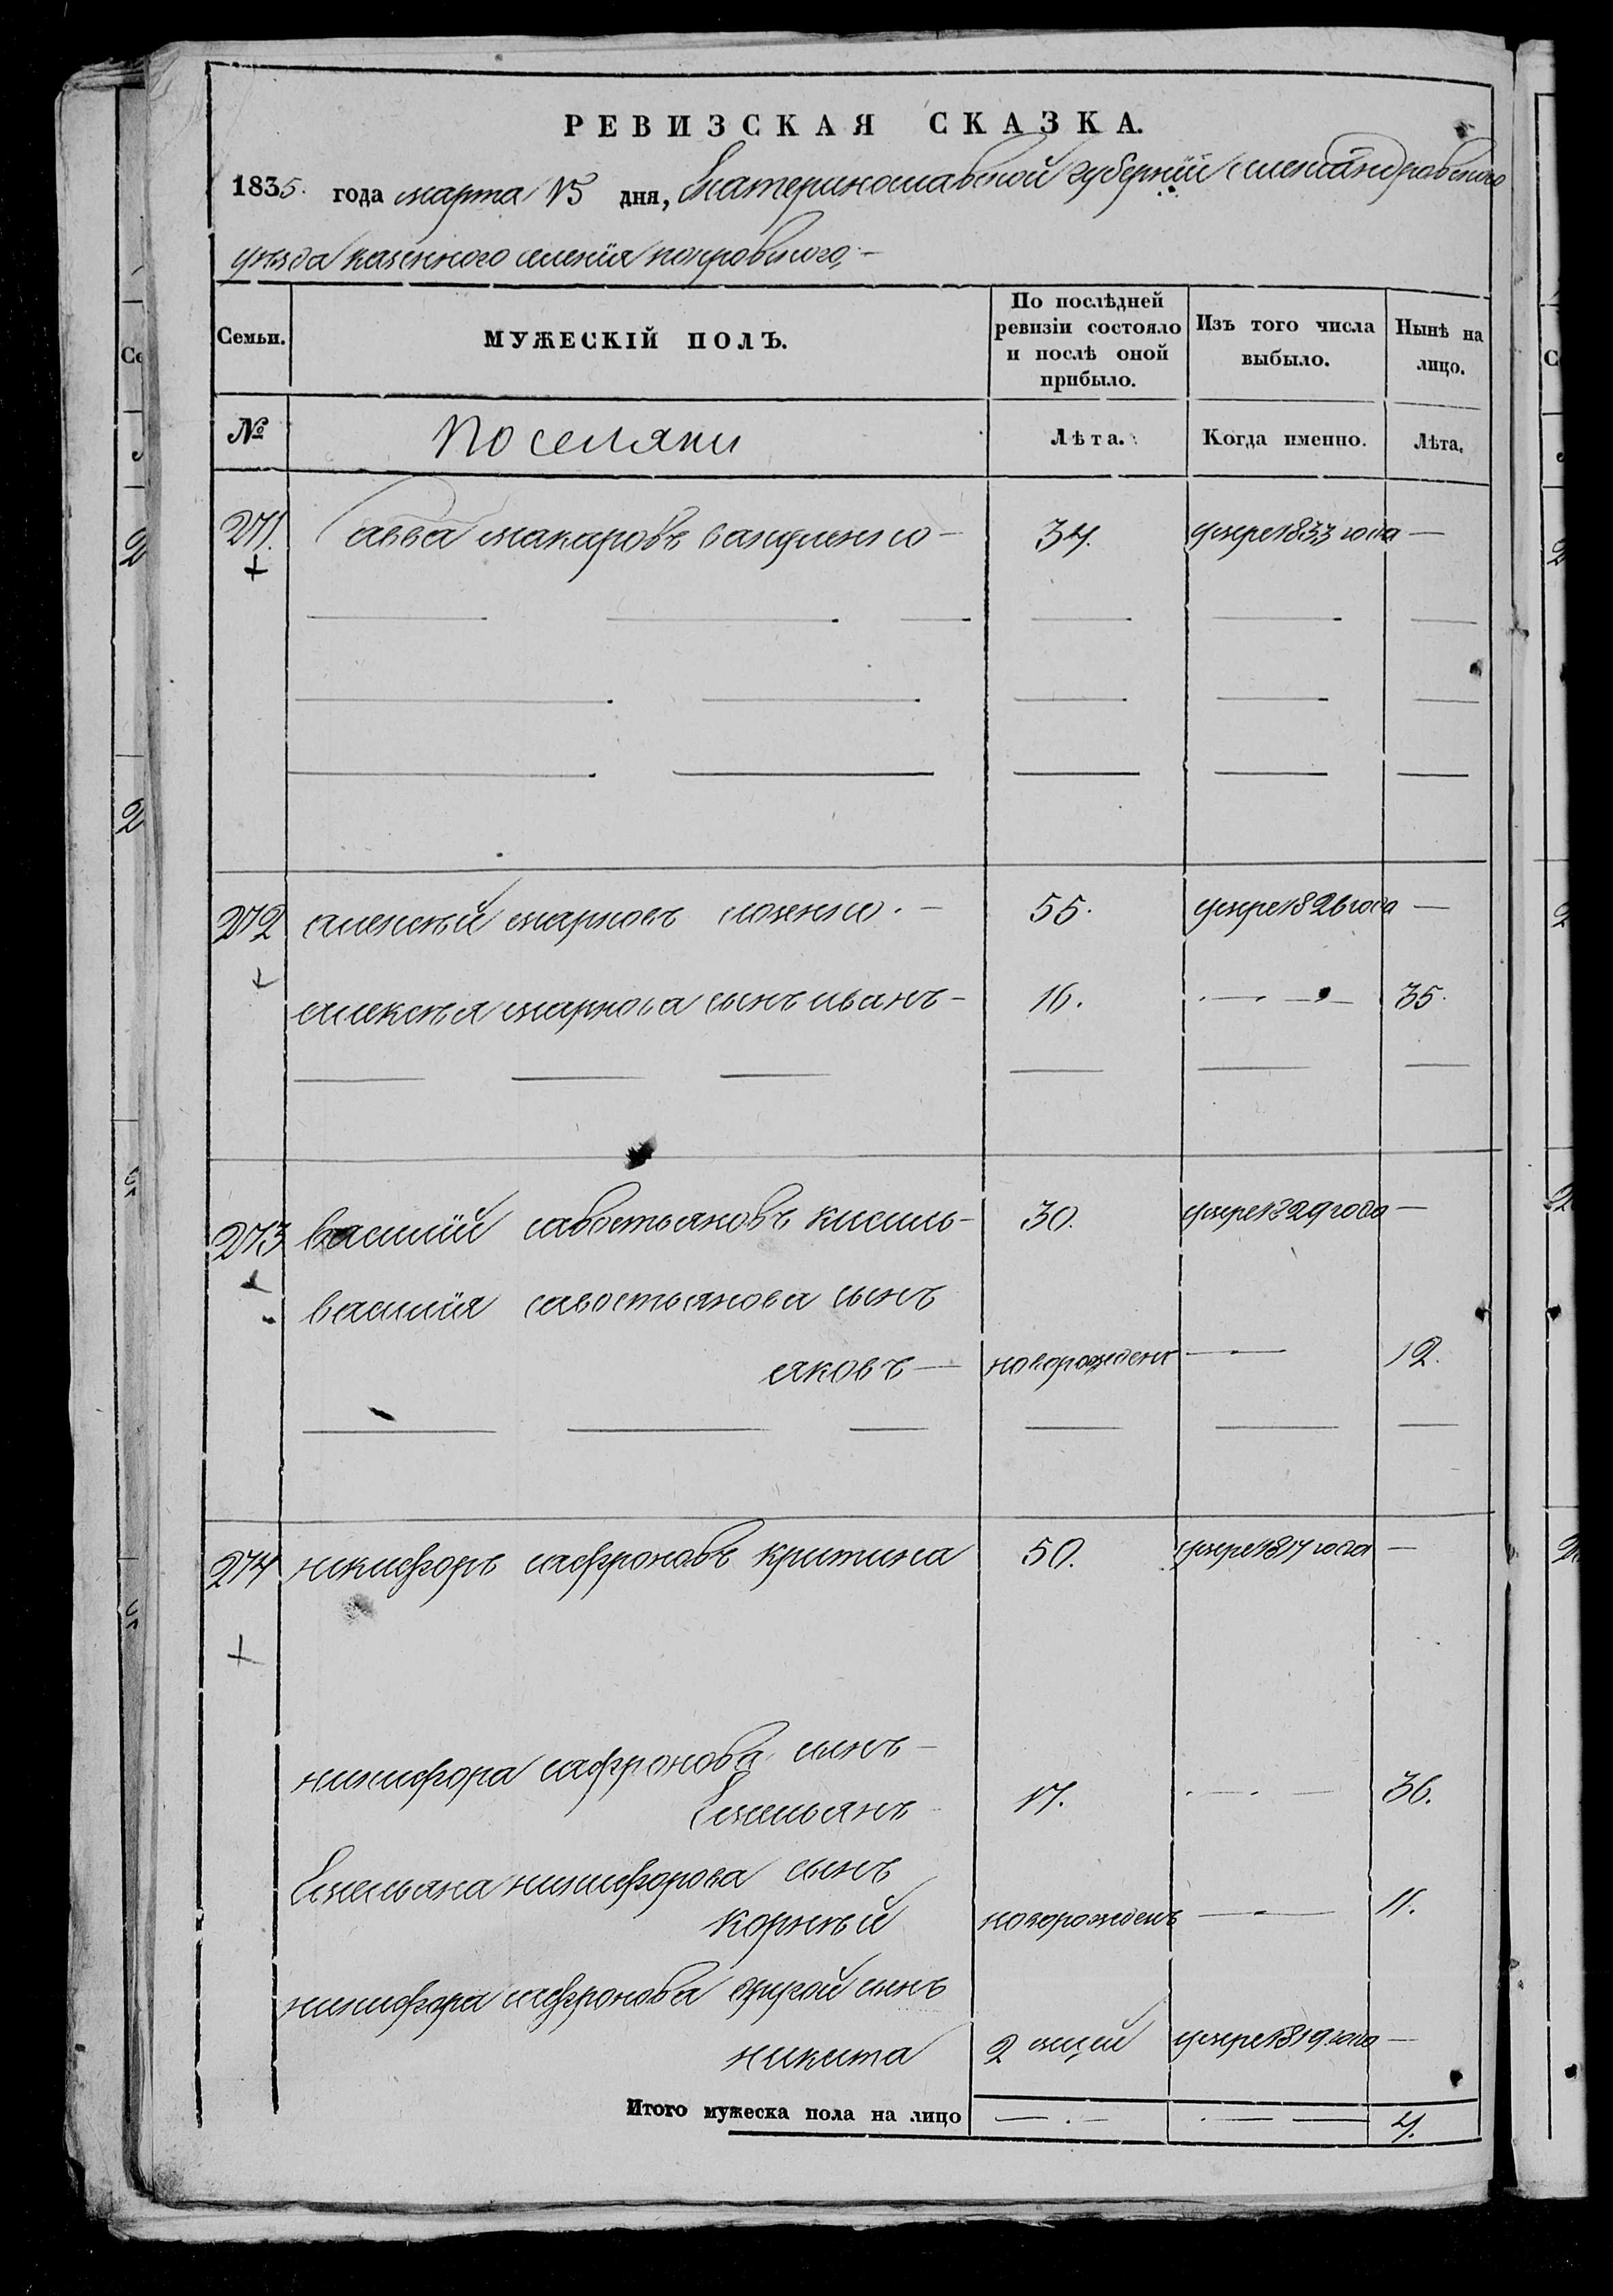 РЕВИЗСКАЯ СКАЗКА.
1835. года марта 15 дня, Екатеринославской губерніи александровского
уезда казенного селенія покровского,—
Семьи. МУЖЕСКІЙ ПОЛЪ. По послѣдней ревизіи состояло и послѣ оной прибыло. Изъ того числа выбыло. Нынѣ на лицо.
№ поселяни Лѣта. Когда именно. Лѣта.
271. Савва макаровъ 34. умре 1833 года —
272 алексѣй марковъ 55. умре 1826 года —
алексѣя маркова сынъ иванъ — 16. — 35.
273 василій савостьяновъ кисиль — 30. умре 1829 года —
василія савостьянова сынъ
яковъ — новорожденъ — 12.
274 никифоръ сафроновъ критина 50. умре 1817 года —
никифора сафронова сынъ —
Емельянъ 17. — 36.
Емельяна никифорова сынъ
корнѣй новорожденъ — 11.
никифора сафронова другой сынъ
никита 2 умре 1819 года —
Итого мужеска пола на лицо — — 4.